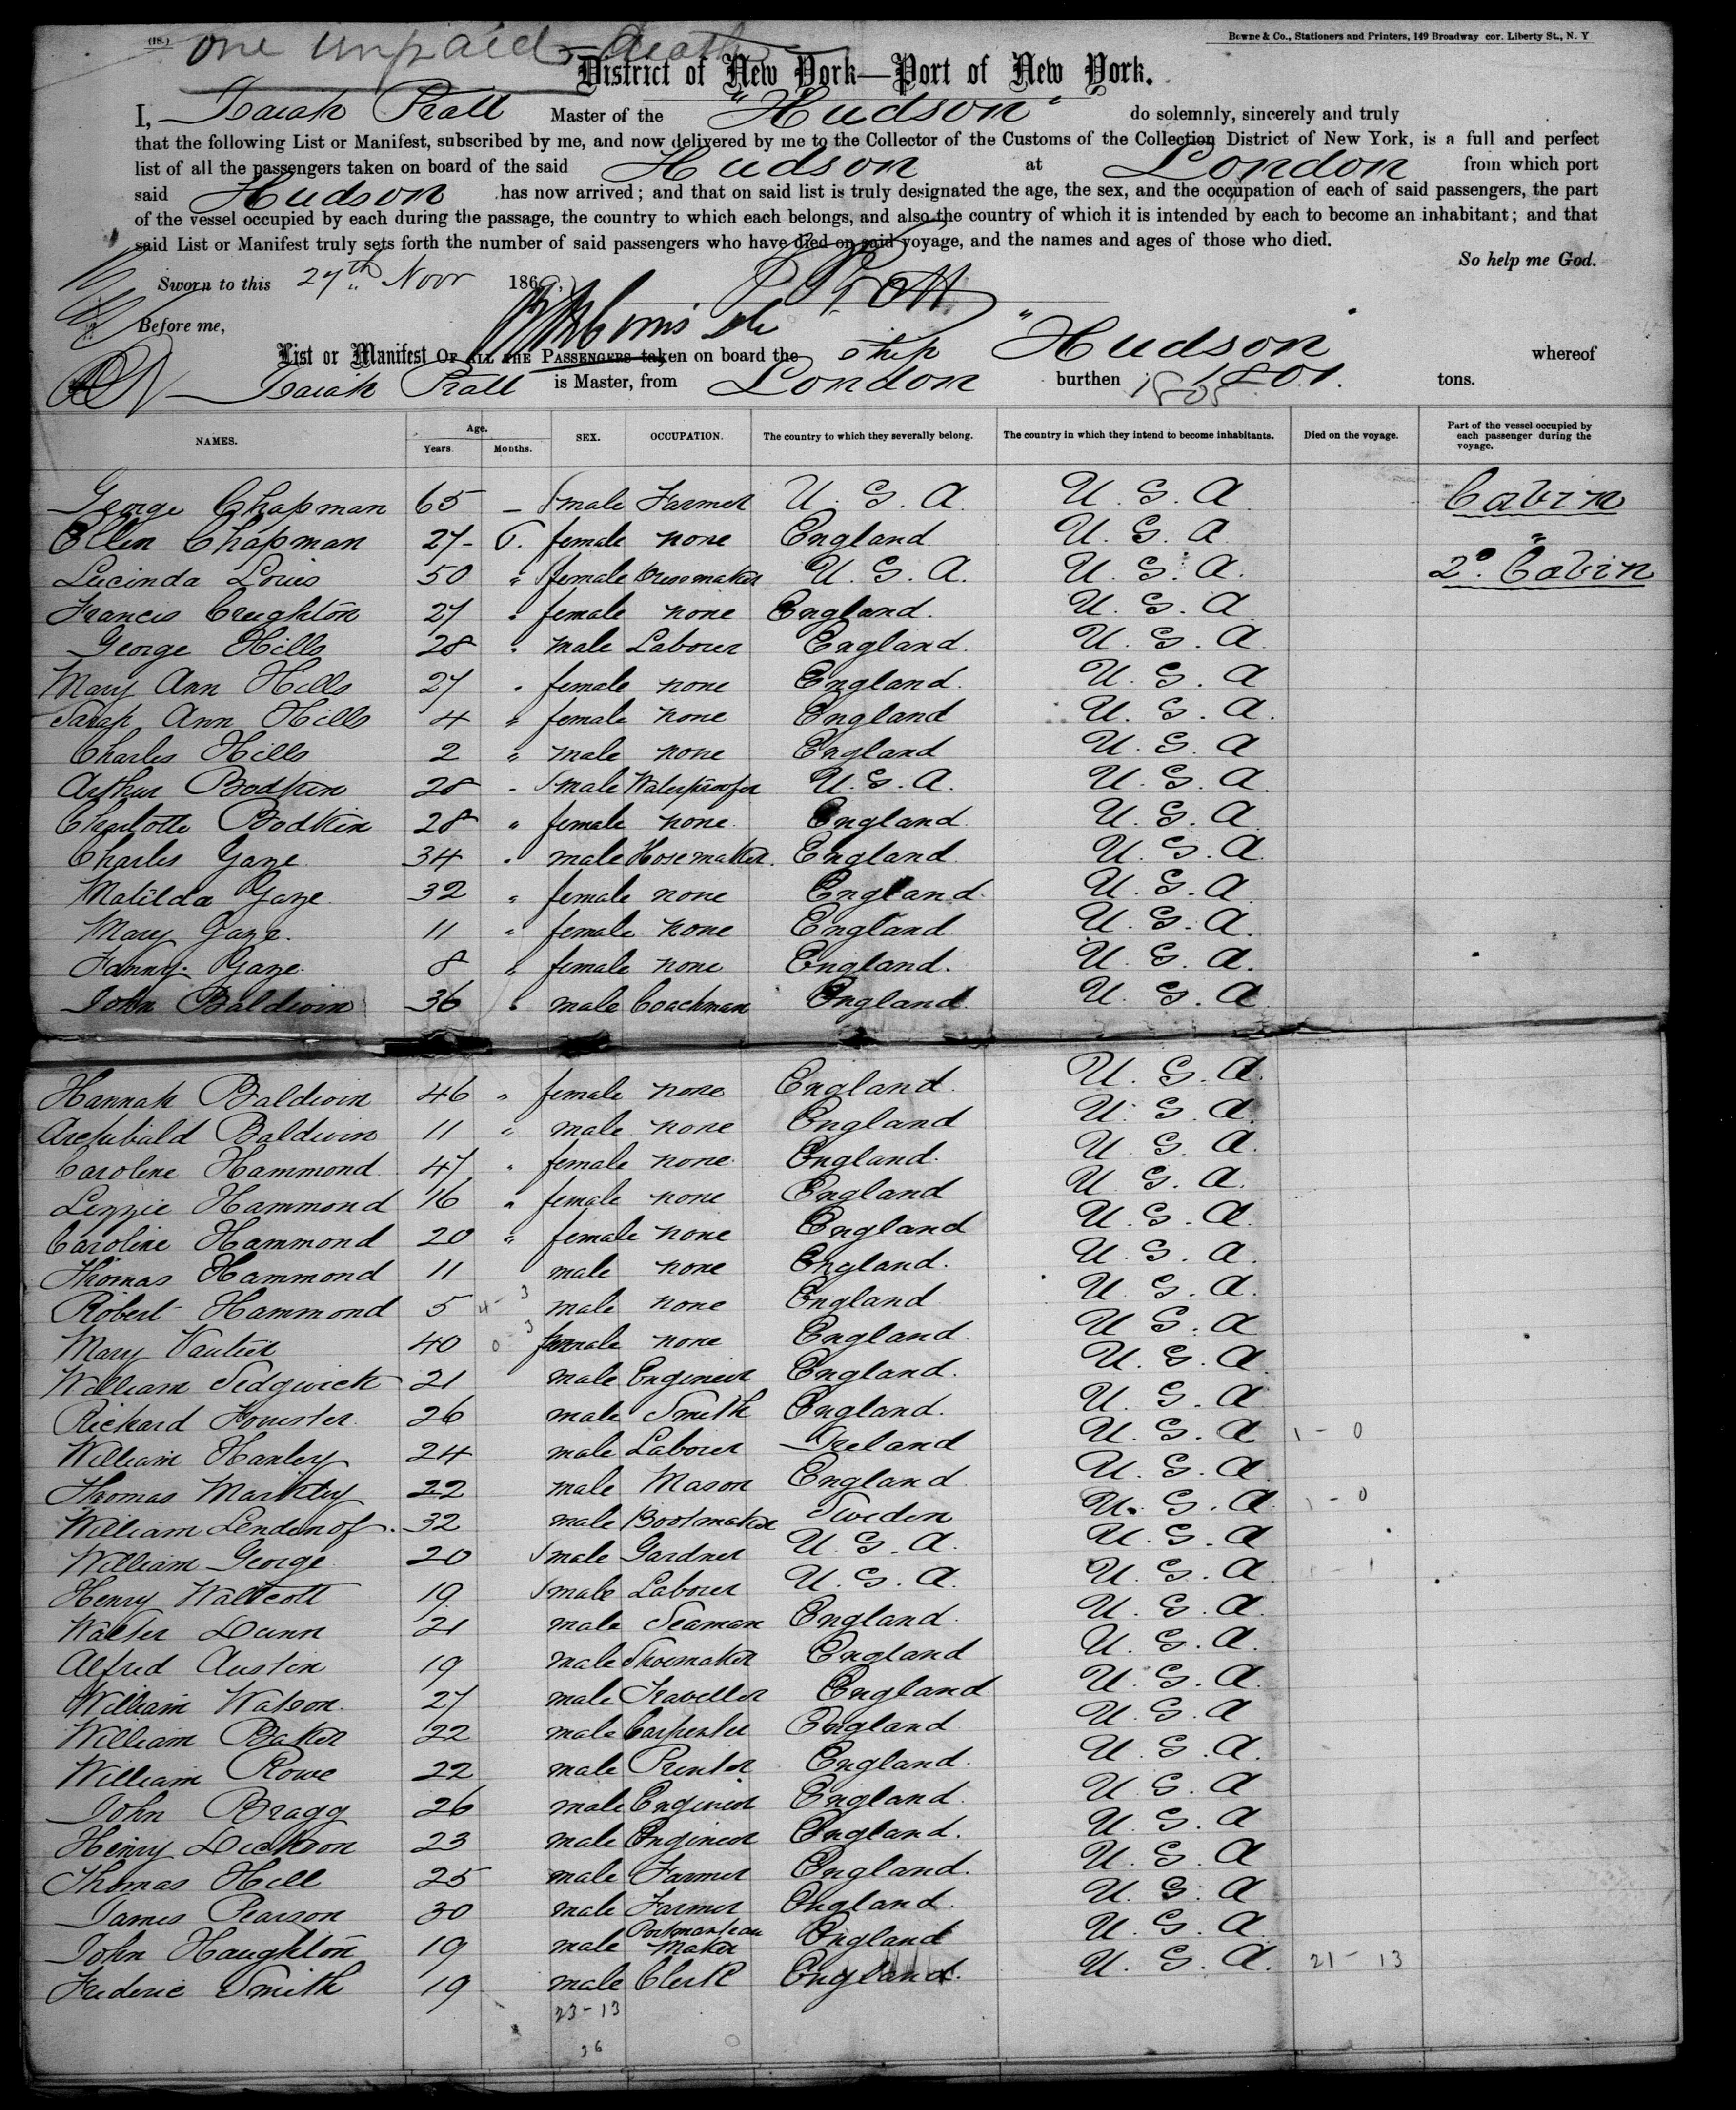 (18.) one unpaid death
Bowne & Co., Stationers and Printers, 149 Broadway cor. Liberty St., N. Y
District of New York—Port of New York.
I, Isaiah Pratt Master of the "Hudson" do solemnly, sincerely and truly
that the following List or Manifest, subscribed by me, and now delivered by me to the Collector of the Customs of the Collection District of New York, is a full and perfect
list of all the passengers taken on board of the said Hudson at London from which port
said Hudson has now arrived; and that on said list is truly designated the age, the sex, and the occupation of each of said passengers, the part
of the vessel occupied by each during the passage, the country to which each belongs, and also the country of which it is intended by each to become an inhabitant; and that
said List or Manifest truly sets forth the number of said passengers who have died on said voyage, and the names and ages of those who died.
So help me God.
Sworn to this 27th Novr 1869 I Pratt
Before me,
List or Manifest OF ALL THE PASSENGERS taken on board the ship "Hudson" whereof
Isaiah Pratt is Master, from London burthen 1801. tons.
NAMES. Age. Years Months. SEX. OCCUPATION. The country to which they severally belong. The country in which they intend to become inhabitants. Died on the voyage. Part of the vessel occupied by each passenger during the voyage.
George Chapman 65 – male Farmer U. S. A. U. S. A Cabin
Ellen Chapman 27 – 6. female none England U. S. A "
Lucinda Louis 50 " female Dressmaker U. S. A. U. S. A. 2d. Cabin
Francis Creighton 27 " female none England. U. S. A
George Hills 28 " male Labourer England. U. S. A.
Mary Ann Hills 27 " female none England. U. S. A
Sarah Ann Hills 4 " female none England U. S. A.
Charles Hills 2 " male none England U. S. A
Arthur Bodkin 28 " male Waterproofer U. S. A. U. S. A.
Charlotte Bodkin 28 " female none. England U. S. A
Charles Gaze 34 " male Hosemaker. England. U. S. A.
Matilda Gaze 32 " female none England. U. S. A
Mary Gaze. 11 " female none England U. S. A.
Fanny Gaze. 8 " female none England. U. S. A.
John Baldwin 36 " male Coachman England U. S. A
Hannah Baldwin 46 " female none England. U. S. A.
Archibald Baldwin 11 " male none England U. S. A.
Caroline Hammond 47 " female none England. U. S. A.
Lizzie Hammond 16 " female none England U. S. A.
Caroline Hammond 20 " female none England U. S. A.
Thomas Hammond 11 male none England. U. S. A.
Robert Hammond 5 4 - 3 male none England U. S. A.
Mary Vautier 40 0 - 3 female none England. U. S. A
William Sedgwick 21 male Engineer England. U. S. A
Richard Forrister 26 male Smith England. U. S. A
William Hanley 24 male Labourer Ireland U. S. A 1 - 0
Thomas 22 male Mason England U. S. A
William Lendenof. 32 male Bootmaker Sweden U. S. A 1 - 0
William George 20 male Gardner U. S. A. U. S. A
Henry Wallcott 19 male Labourer U. S. A. U. S. A 1 - 1
Walter Dunn 21 male Seaman England. U. S. A.
Alfred Austin 19 male Shoemaker England U. S. A.
William Watson. 27 male Traveller England U. S. A.
William Baker 22 male Carpenter England U. S. A
William Rowe 22 male Printer England. U. S. A.
John Bragg 26 male Engineer England. U. S. A
Henry Dickson 23 male Engineer England. U. S. A
Thomas Hill 25 male Farmer England. U. S. A
James Pearson 30 male Farmer England. U. S. A
John Haughton 19 male Portmanteau Maker England U. S. A
Frederic Smith 19 male Clerk England. U. S. A. 21 - 13
23 - 13
36